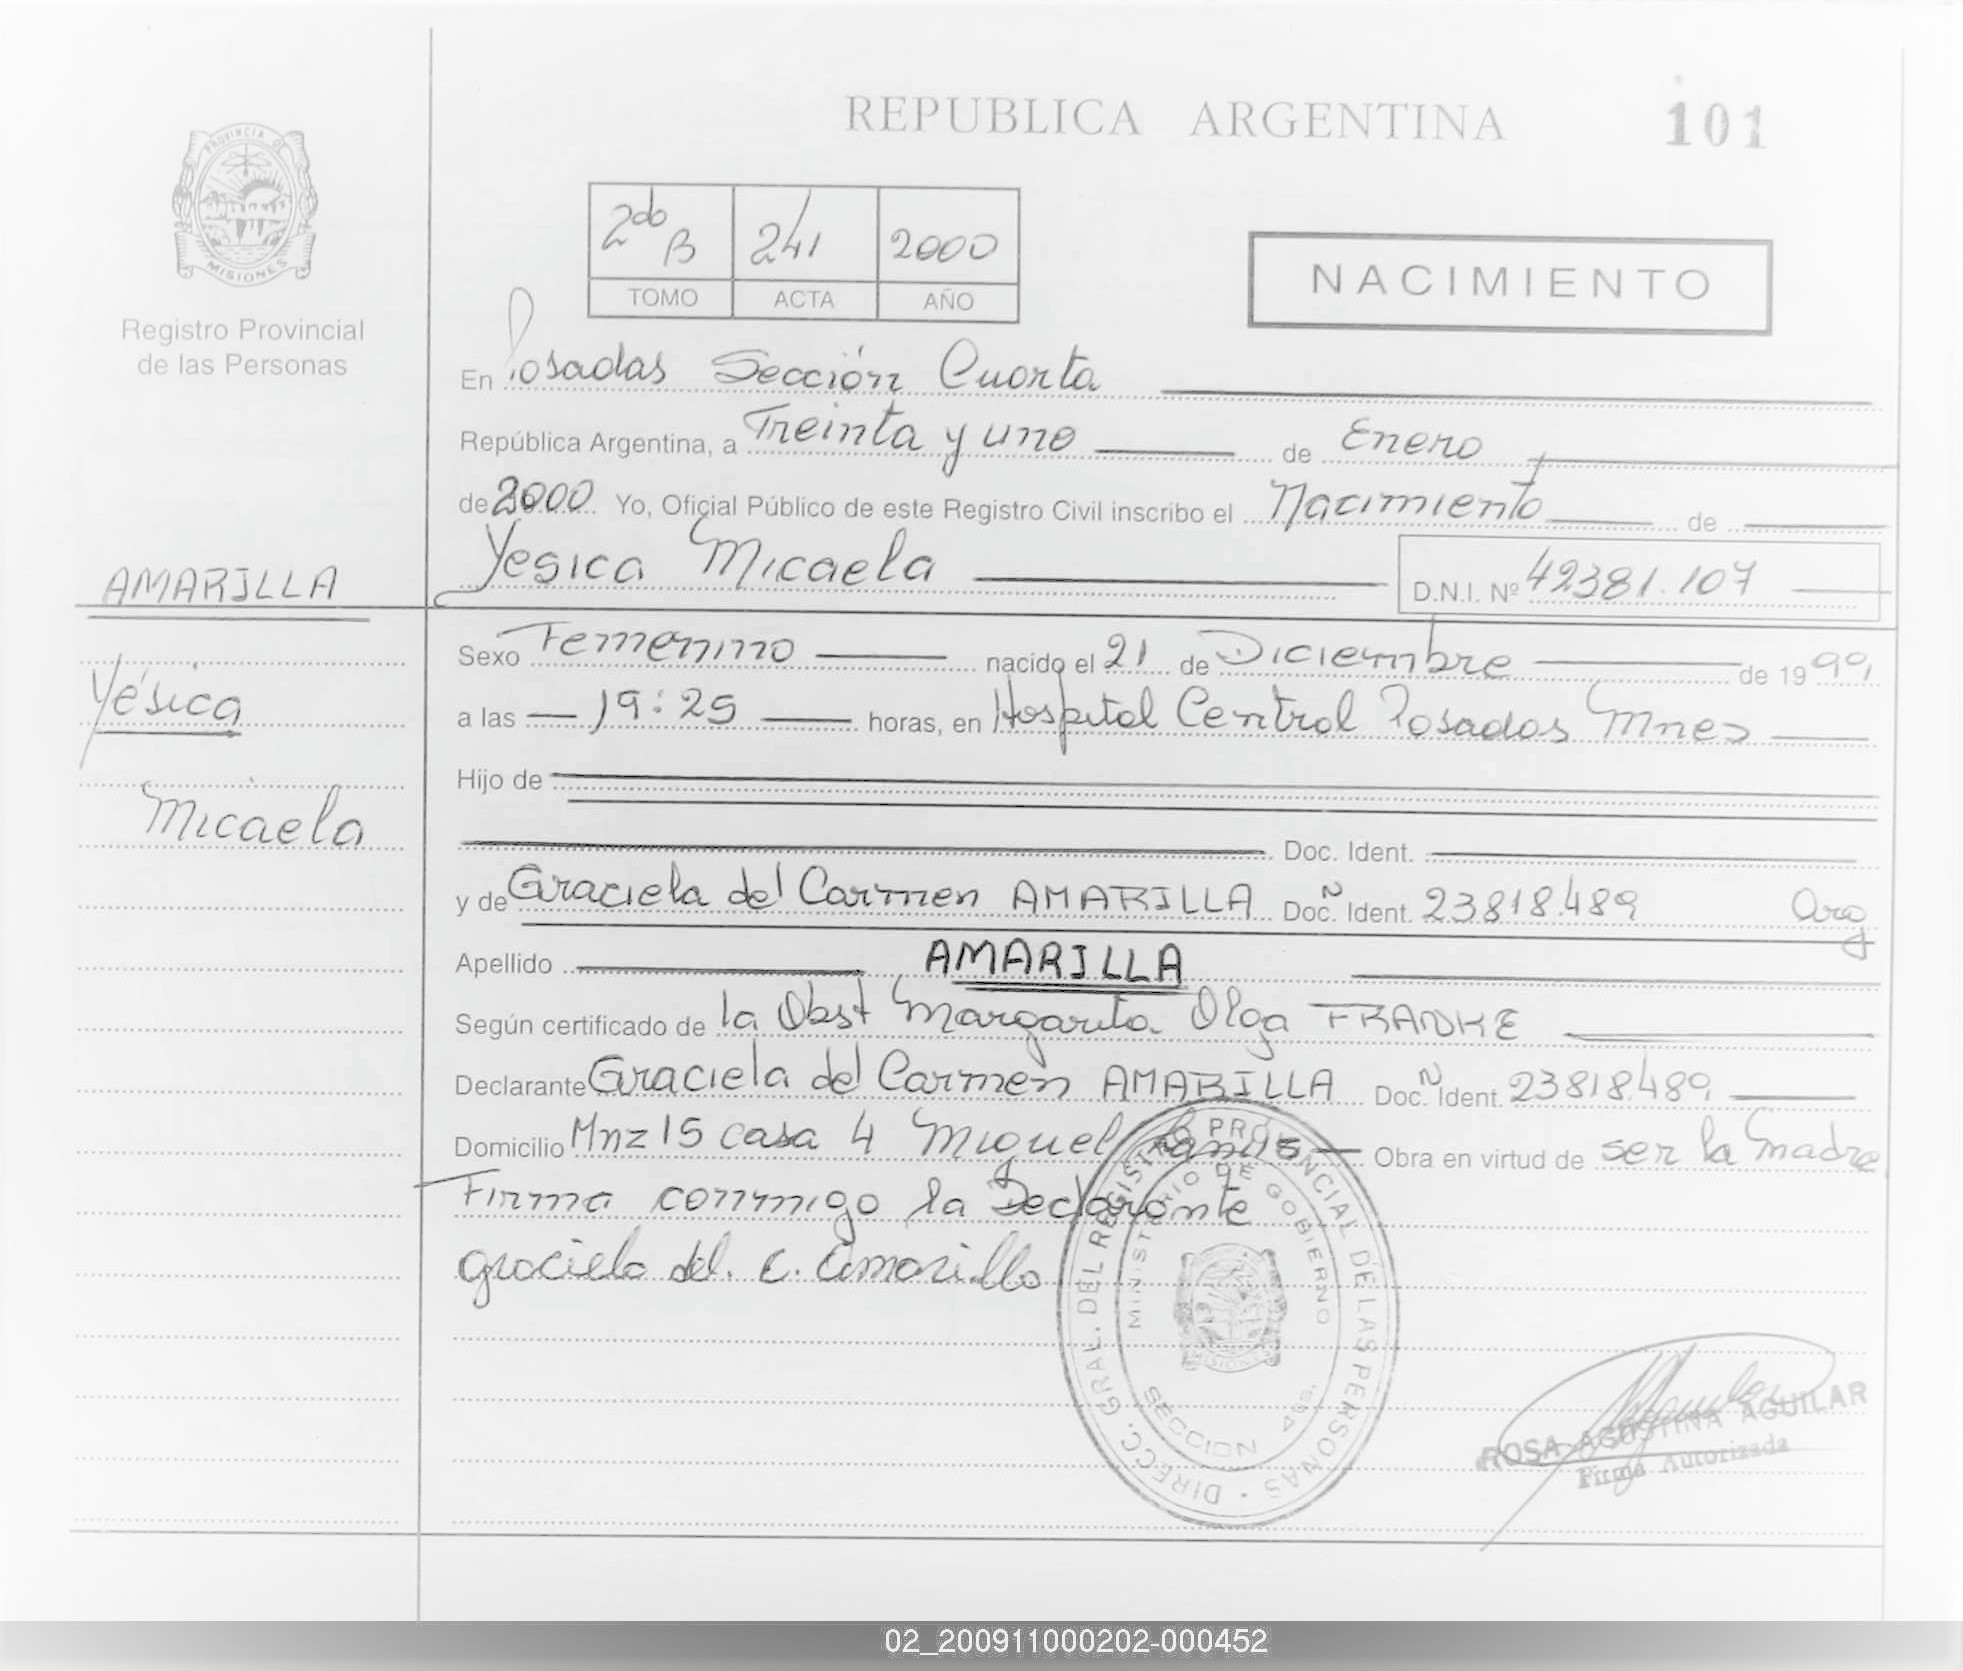 REPUBLICA ARGENTINA
101
PROVINCIA DE
MISIONES
Registro Provincial
de las Personas
2do B 241 2000
TOMO ACTA AÑO
NACIMIENTO
En Posadas Sección Cuarta
República Argentina, a Treinta y uno de Enero
de 2000 Yo, Oficial Público de este Registro Civil inscribo el Nacimiento de
Yesica Micaela D.N.I. Nº 42381.107
AMARILLA
Yésica
Micaela
Sexo Femenino nacido el 21 de Diciembre de 1999
a las 19:25 horas, en Hospital Central Posadas Mnes
Hijo de
Doc. Ident.
y de Graciela del Carmen AMARILLA Doc. Ñ Ident. 23818.489 Arg
Apellido AMARILLA
Según certificado de la Obst Margarita Olga FRANKE
Declarante Graciela del Carmen AMARILLA Doc. Ñ Ident. 23818.489
Domicilio Mnz 15 casa 4 Miguel Lanus Obra en virtud de ser la Madre
Firma conmigo la Declarante
graciela del. c. Amarilla
DIRECC. GRAL. DEL REGISTRO PROVINCIAL DE LAS PERSONAS
MINISTERIO DE GOBIERNO
MISIONES
SECCION 4ta.
ROSA AGUSTINA AGUILAR
Firma Autorizada
02_200911000202-000452